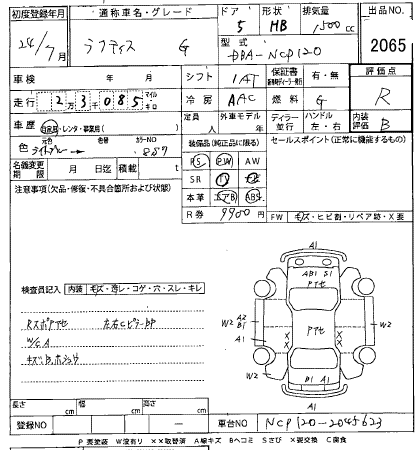 初度登録年月 通称車名・グレード ドア 形状 排気量 出品NO.
24/7月 ラクティス G 5 HB 1,500cc 2065
型式
DBA-NCP120
車検 年 月 シフト 1AT 保証書 有・無 評価点
走行 2 3 085 マイル キロ 冷房 AAC 燃料 G R
車歴 自家用・レンタ・事業用( ) 定員 人 外車モデル 年 ディーラー 並行 ハンドル 左・右 内装評価 B
色 元色 色替 カラーNO 装備品(純正品に限る) セールスポイント(正常に機能するもの)
ライトブルー 8S7
PS PW AW
名義変更期限 月 日迄 積載 t
SR
注意事項(欠品・修復・不具合箇所および状態)
本革 エアB ABS
R券 9900 円
FW キズ・ヒビ割・リペア跡・X要
A1
AB1 S1
アセ
検査員記入 内装 キズ・汚レ・コゲ・穴・スレ・キレ
W2 A2 B1 A1 アセ W2
Rスポアセ 左右CピラーBP
W/C A
キズ、B、
W2 W2
B1 A1
A1
長さ cm 幅 cm 高さ cm
登録NO ー 車台NO NCP120-2045623
P要塗装 W波有り ××取替済 A線キズ Bヘコミ Sさび ×要交換 C腐食